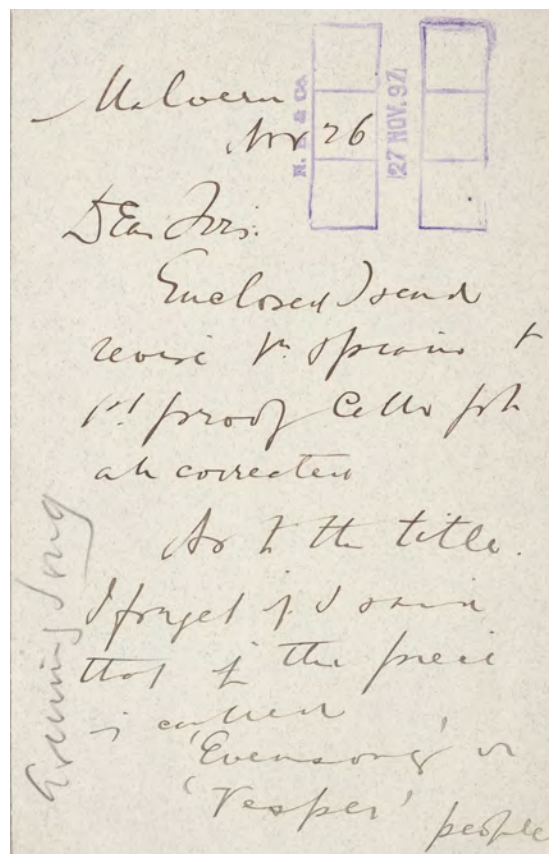 Malvern
Nov 26
N. E. & Co.
27 NOV. 97
Dear Sirs.
Enclosed I send
revise Vn. & piano &
1st proof Cello pt
all corrected
As to the title.
I forget if I said
that if the piece
is called
'Evensong' or
'Vesper' people
Evening Song